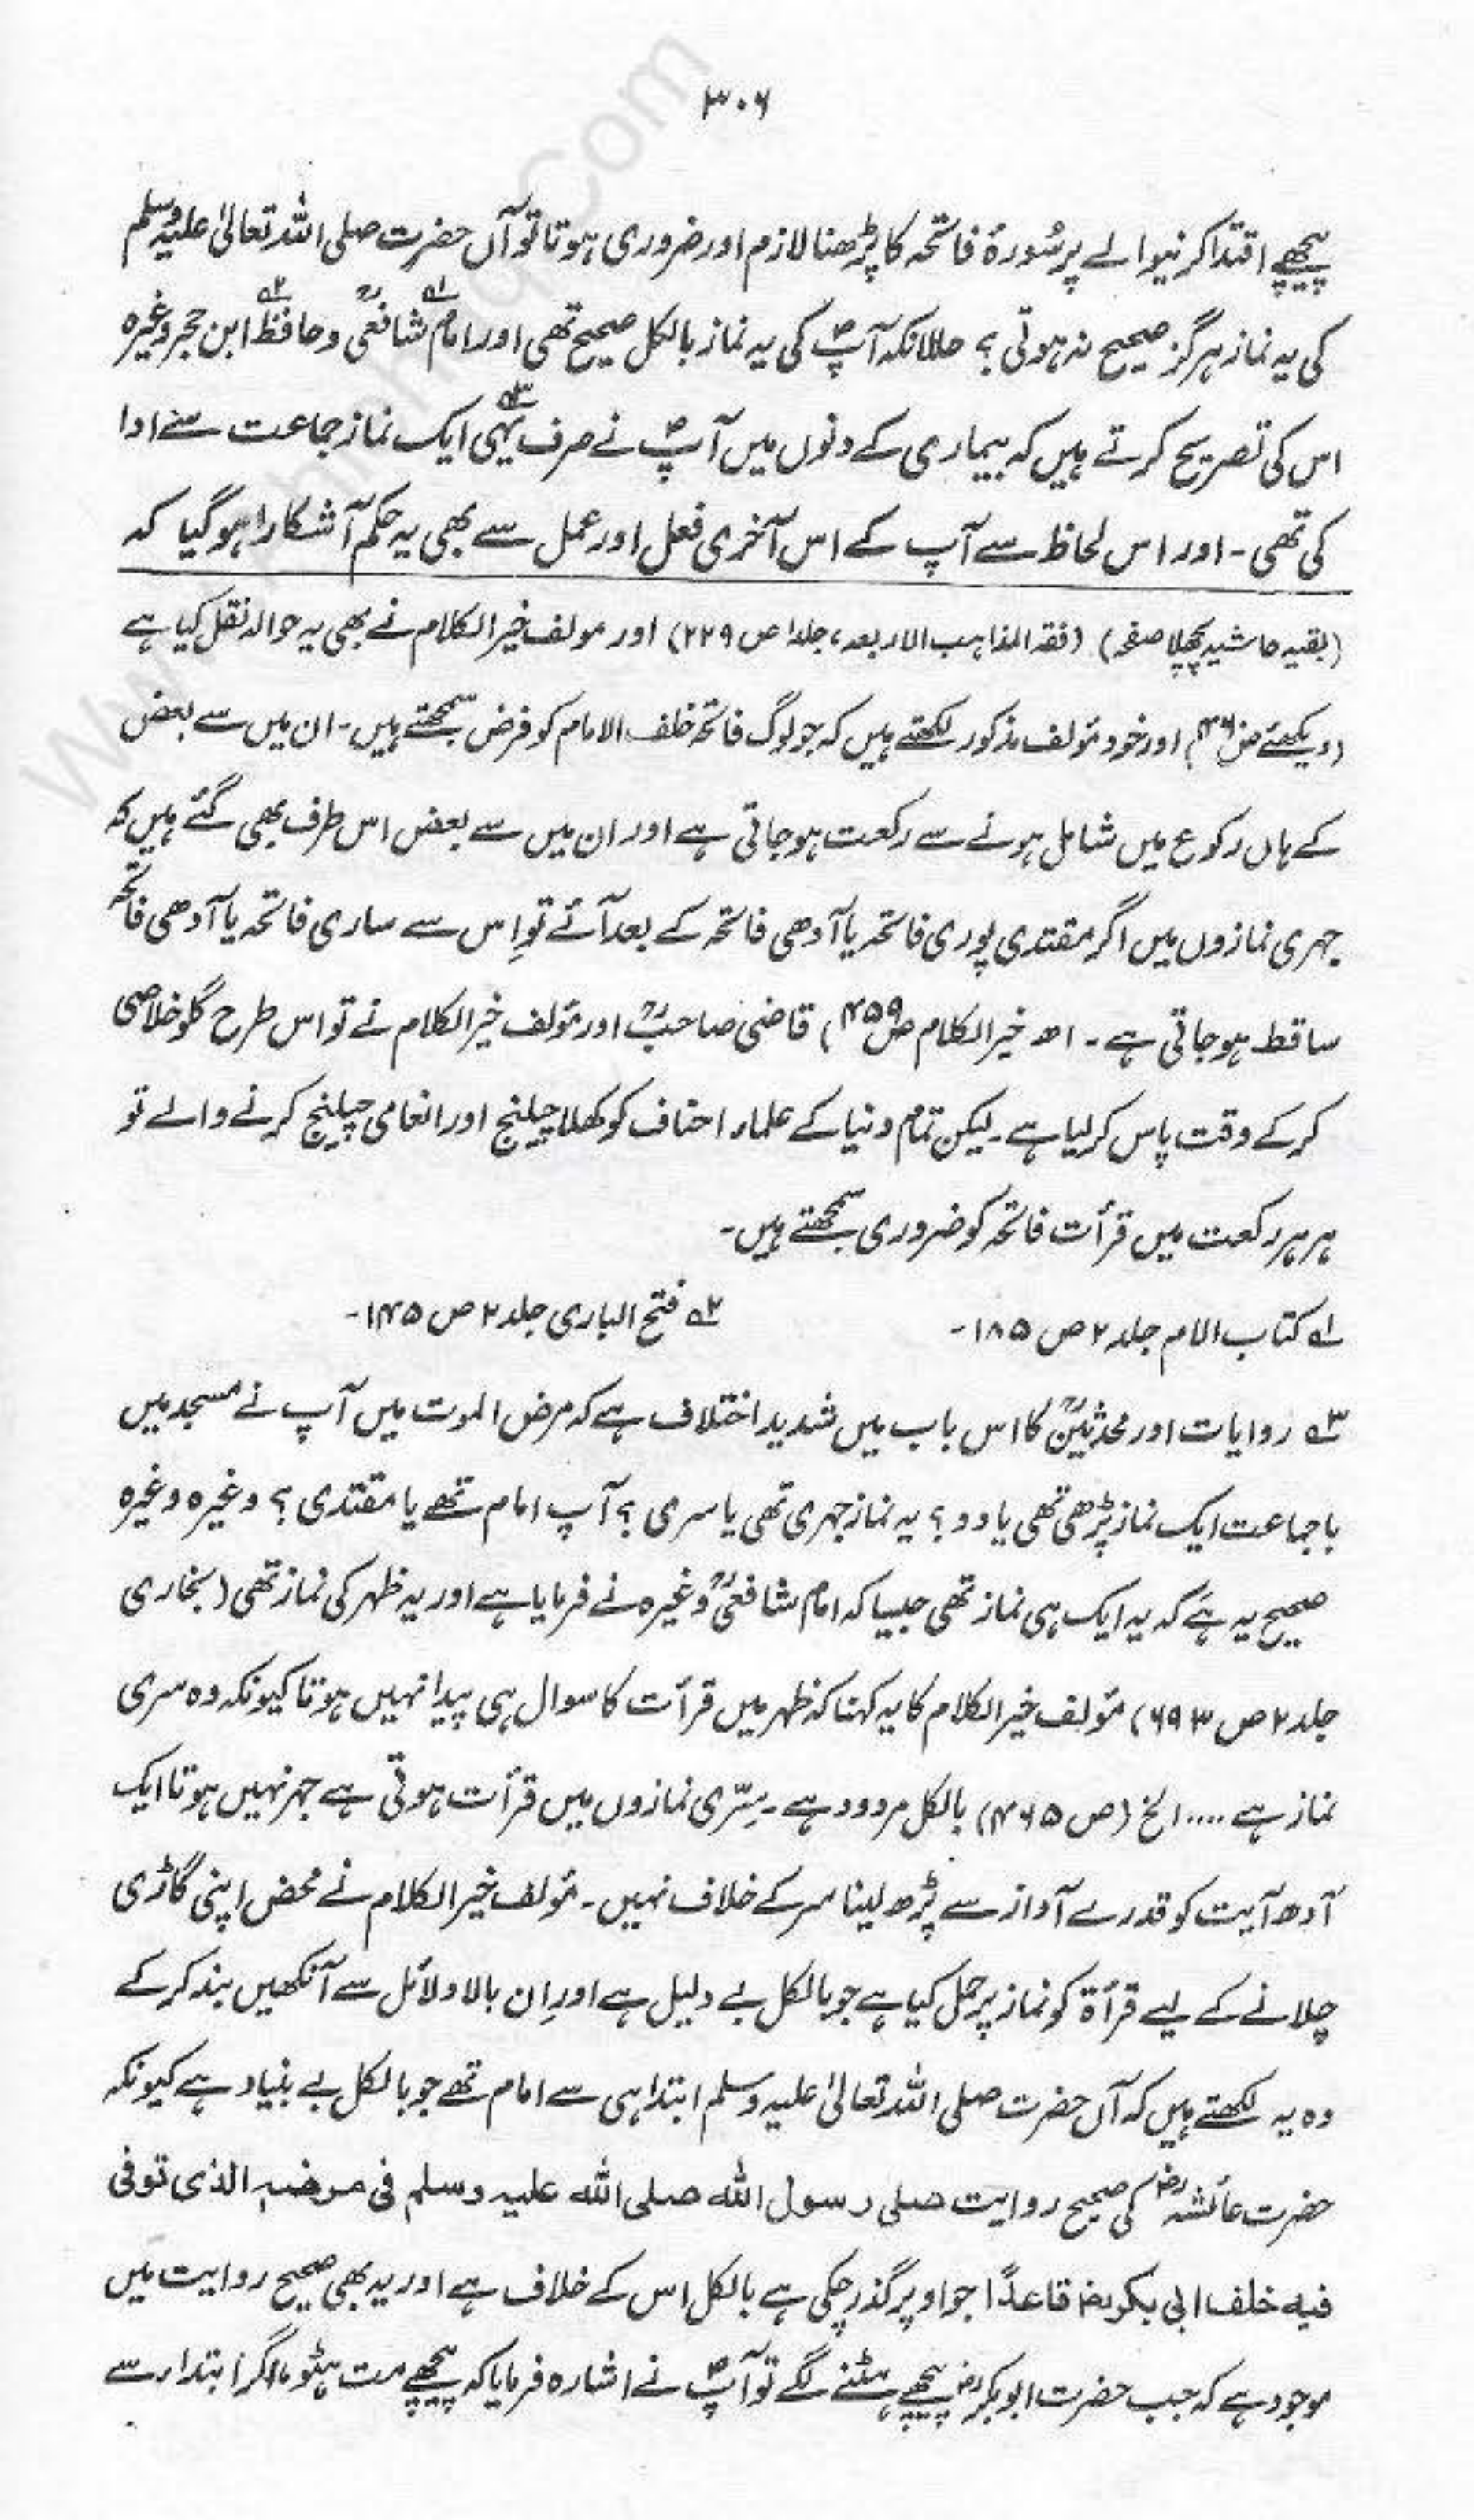 ۳۰۶
پیچھے اقتدا کرنیوالے پر سُورۂ فاتحہ کا پڑھنا لازم اور ضروری ہوتا تو آں حضرت صلی اللہ تعالیٰ علیہ وسلم
کی یہ نماز ہرگز صحیح نہ ہوتی؟ حالانکہ آپؐ کی یہ نماز بالکل صحیح تھی اور امام۱ شافعیؒ و حافظ۲ ابن حجر وغیرہ
اس کی تصریح کرتے ہیں کہ بیماری کے دنوں میں آپؐ نے صرف یہی۳ ایک نماز جماعت سے ادا
کی تھی۔ اور اس لحاظ سے آپ کے اس آخری فعل اور عمل سے بھی یہ حکم آشکارا ہوگیا کہ
(بقیہ حاشیہ پچھلا صفحہ) (فقہ المذاہب الاربعہ، جلد۱ ص ۲۲۹) اور مولف خیر الکلام نے بھی یہ حوالہ نقل کیا ہے
(دیکھئے اور خود مؤلف مذکور لکھتے ہیں کہ جو لوگ فاتحہ خلف الامام کو فرض سمجھتے ہیں۔ ان میں سے بعض
کے ہاں رکوع میں شامل ہونے سے رکعت ہوجاتی ہے اور ان میں سے بعض اس طرف بھی گئے ہیں کہ
جہری نمازوں میں اگر مقتدی پوری فاتحہ یا آدھی فاتحہ کے بعد آئے تو اِس سے ساری فاتحہ یا آدھی فاتحہ
ساقط ہوجاتی ہے۔ اھ خیر الکلام ص۴۵۹) قاضی صاحبؒ اور مؤلف خیر الکلام نے تو اس طرح گلو خلاصی
کرکے وقت پاس کرلیا ہے۔ لیکن تمام دنیا کے علماء احناف کو کھلا چیلنج اور انعامی چیلنج کرنے والے تو
ہر ہر رکعت میں قرأت فاتحہ کو ضروری سمجھتے ہیں۔
۱ کتاب الام جلد ۲ ص ۱۸۵۔ ۲ فتح الباری جلد ۲ ص ۱۴۵۔
۳ روایات اور محدثینؒ کا اس باب میں شدید اختلاف ہے کہ مرض الموت میں آپ نے مسجد میں
باجماعت ایک نماز پڑھی تھی یا دو؟ یہ نماز جہری تھی یا سری؟ آپ امام تھے یا مقتدی؟ وغیرہ وغیرہ
صحیح یہ ہے کہ یہ ایک ہی نماز تھی جیسا کہ امام شافعیؒ وغیرہ نے فرمایا ہے اور یہ ظہر کی نماز تھی (بخاری
جلد ۲ ص ۶۹۳) مؤلف خیر الکلام کا یہ کہنا کہ ظہر میں قرأت کا سوال ہی پیدا نہیں ہوتا کیونکہ وہ سری
نماز ہے .... الخ (ص ۴۶۵) بالکل مردود ہے۔ سِرّی نمازوں میں قرأت ہوتی ہے جہر نہیں ہوتا ایک
آدھ آیت کو قدرے آواز سے پڑھ لینا سر کے خلاف نہیں۔ مؤلف خیر الکلام نے محض اپنی گاڑی
چلانے کے لیے قرأۃ کو نماز پر حمل کیا ہے جو بالکل بے دلیل ہے اور اِن بالا دلائل سے آنکھیں بند کرکے
وہ یہ لکھتے ہیں کہ آں حضرت صلی اللہ تعالیٰ علیہ وسلم ابتدا ہی سے امام تھے جو بالکل بے بنیاد ہے کیونکہ
حضرت عائشہؓ کی صحیح روایت صلی رسول اللہ صلی اللہ علیہ وسلم فی مرضہ الذی توفی
فیہ خلف ابی بکرؓ قاعدًا جو اوپر گذر چکی ہے بالکل اس کے خلاف ہے اور یہ بھی صحیح روایت میں
موجود ہے کہ جب حضرت ابوبکرؓ پیچھے ہٹنے لگے تو آپؐ نے اشارہ فرمایا کہ پیچھے مت ہٹو، اگر ابتداء سے